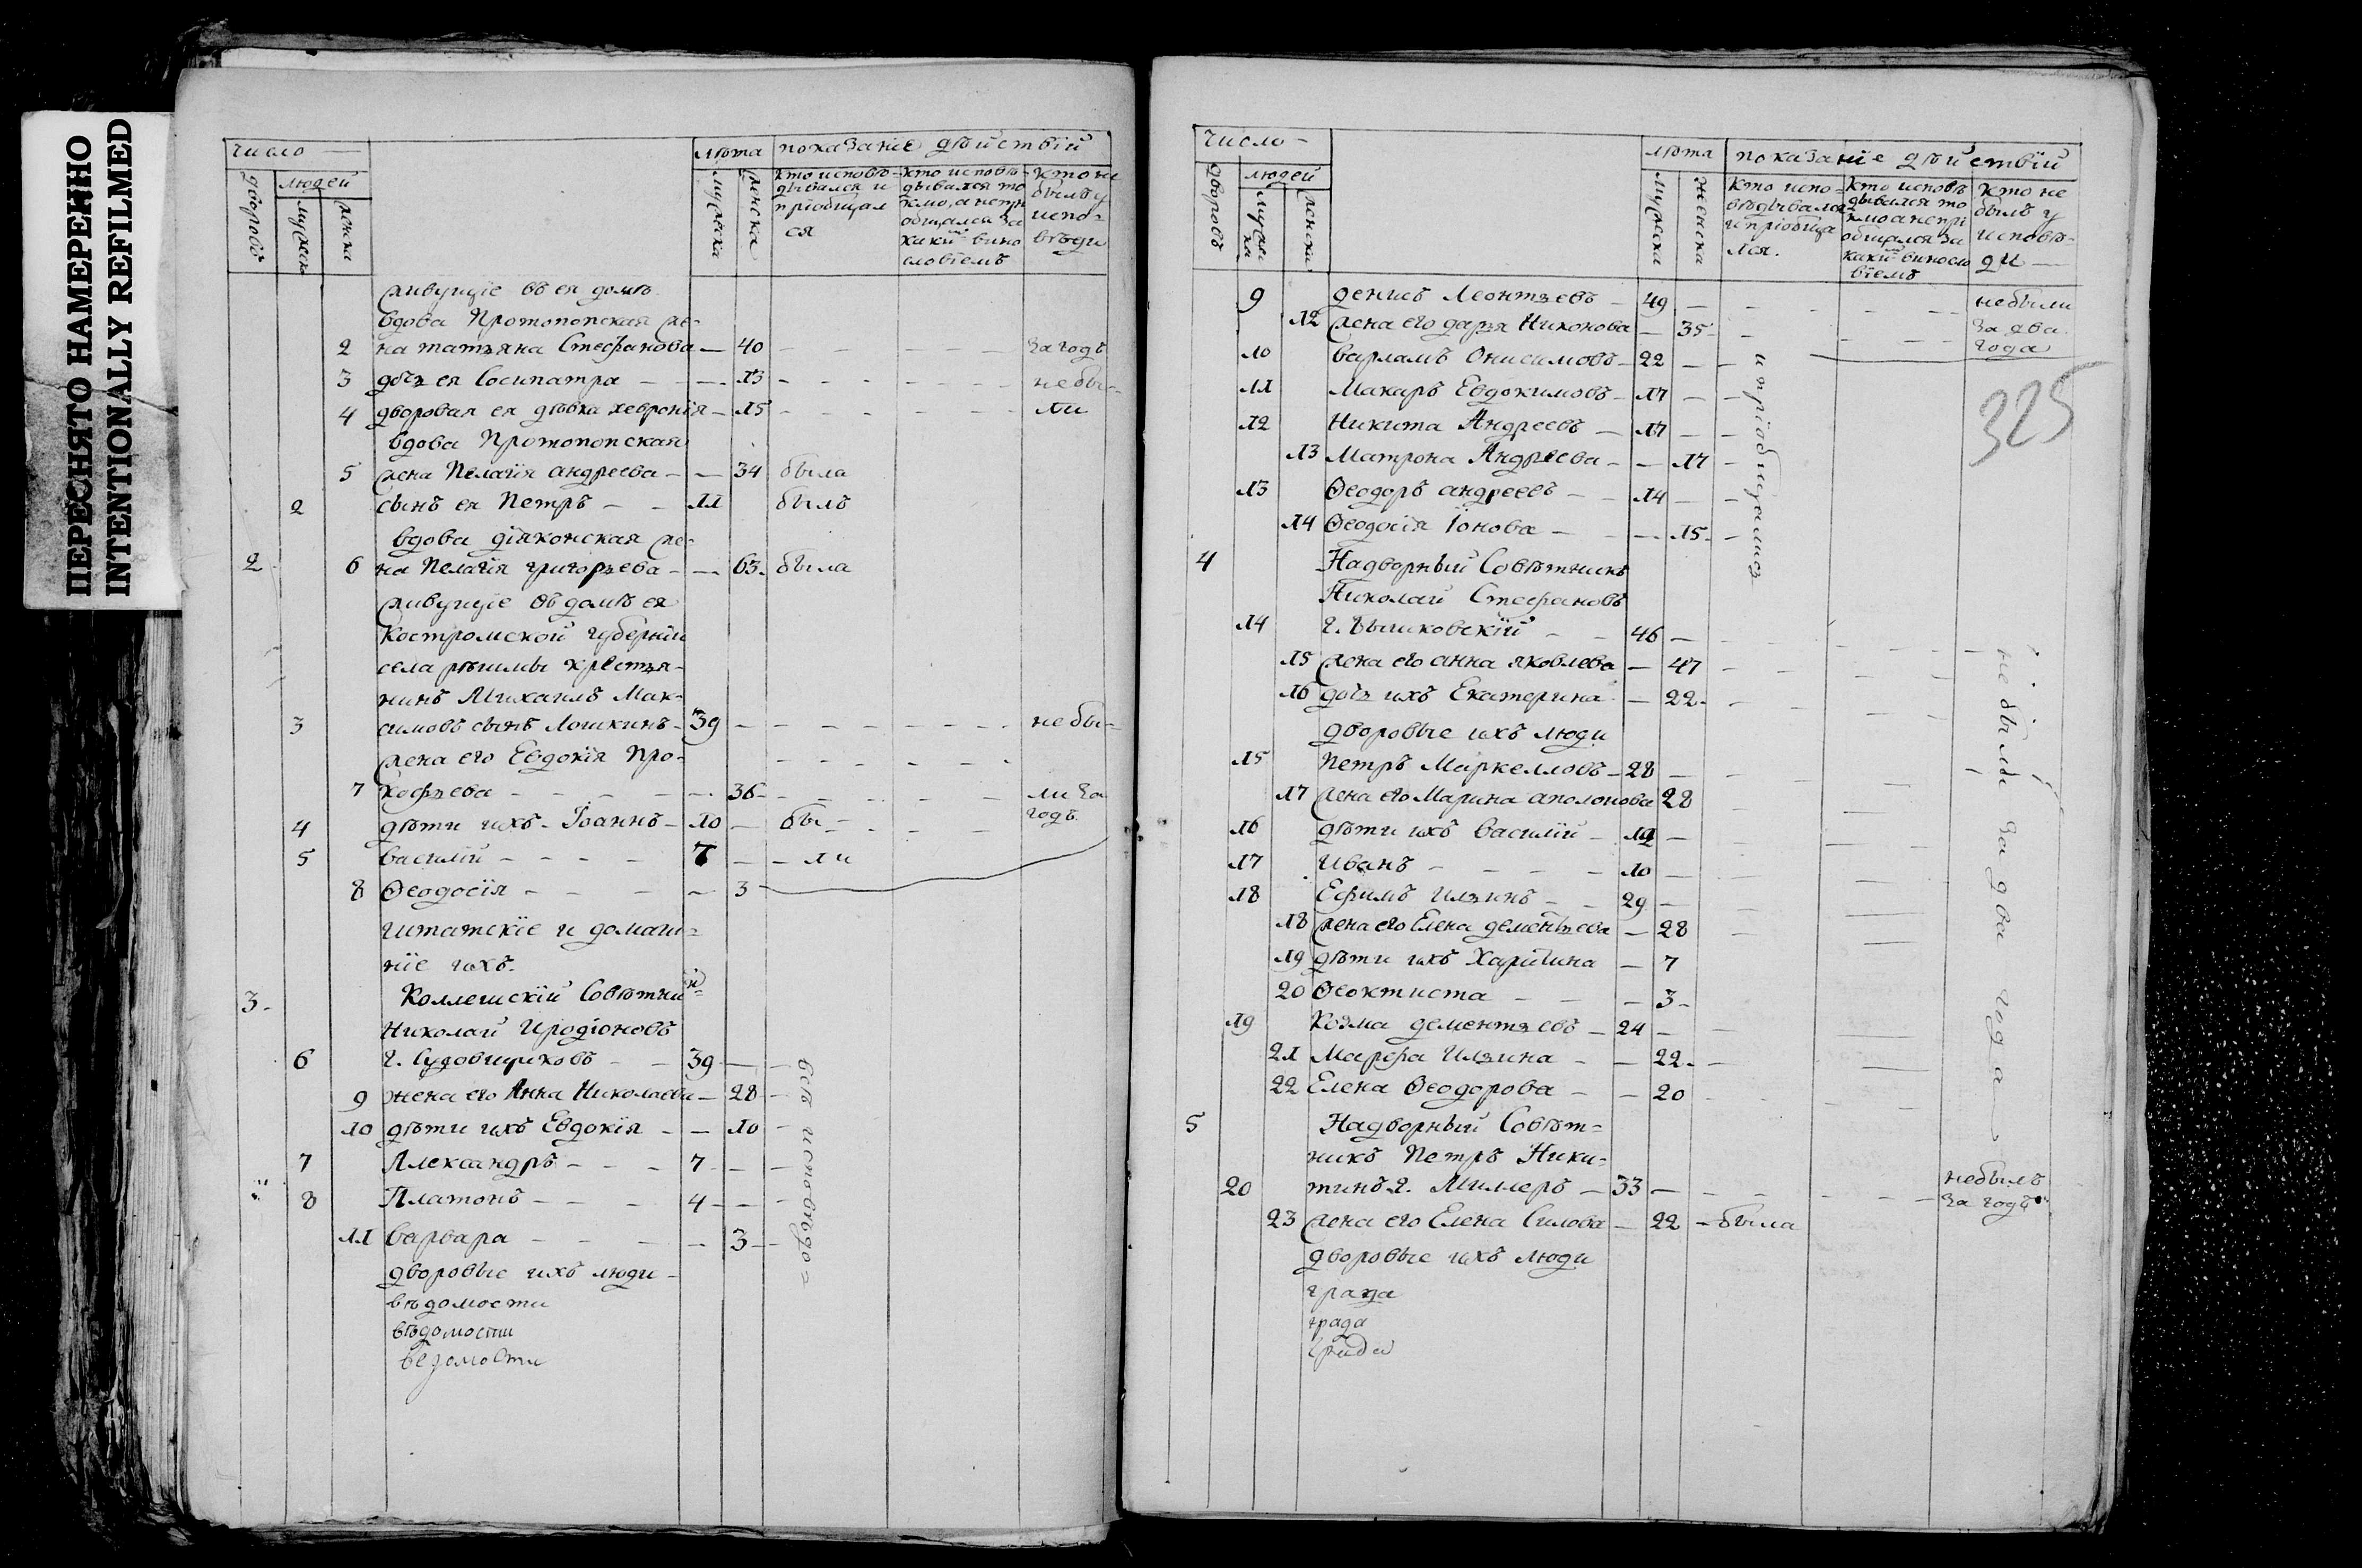 ПЕРЕСНЯТО НАМЕРЕННО
INTENTIONALLY REFILMED
число
дворовъ
людей
мужеска
женска
лѣта
мужеска
женска
показанїе дѣйствїй
кто исповѣ-
дывался и
прїобщал
ся
кто исповѣ-
дывался то
кмо, а непрі
общался за
какимъ вино
словїемъ
кто не
былъ у
испо=
вѣди
живущїе въ ея домѣ
вдова Протопопская же-
2 на татьяна Стефанова — 40 за годъ
3 дочь ея Сосипатра — 13 не бы=
4 дворовая ея дѣвка хевронїя — 15 ли
вдова Протопопская
5 жена Пелагїя андреева — 34 была
2 сынъ ея Петръ — 11 былъ
вдова дїяконская же-
2 6 на Пелагїя григорьева — 63 была
живущїе въ домѣ ея
Костромской губернїи
села рѣшмы крестья-
нинъ Михаилъ Мак-
3 симовъ сынъ Лошкинъ — 39 не бы=
жена его Евдокїя Про-
7 кофьева — 36 ли за
4 дѣти ихъ Іоаннъ — 10 — бы= годъ
5 василїй — 7 — ли
8 Ѳеодосїя — 3
штатскїе и домаш=
нїе ихъ
3 Коллешскїй Совѣтникъ
Николай Иродїоновъ
6 г. Судовщиковъ — 39
9 жена его Анна Николаева — 28
10 дѣти ихъ Евдокїя — 10
7 Александръ — 7
8 Платонъ — 4
11 варвара — 3
всѣ исповѣдо=
дворовые ихъ люди
вѣдомости
вѣдомости
ведомости
число
дворовъ
людей
мужеска
женска
лѣта
мужеска
женска
показанїе дѣйствїй
кто испо=
вѣдывался
и прїобща
лся.
кто исповѣ
дывался то
кмо а непрі
общался за
какимъ винosло
вїемъ
кто не
былъ у
исповѣ-
ди
9 денисъ Леонтьевъ — 49 не были
12 жена его дарья Никонова — 35 за два
10 варламъ Онисимовъ — 22 года
11 Макаръ Евдокимовъ — 17
12 Никита Андреевъ — 17
13 Матрона Андреева — 17
13 Ѳеодоръ андреевъ — 14
14 Ѳеодосїя Їонова — 15
и прїобщались
325
4 Надворный Совѣтникъ
Николай Стефановъ
14 г. Вышковскїй — 46
15 жена его анна яковлева — 47
16 дочь ихъ Екатерина — 22
дворовые ихъ люди
15 Петръ Маркелловъ — 28
17 жена его Марина аполонова 28
16 дѣти ихъ василїй — 12
17 Иванъ — 10
18 Ефимъ Ильинъ — 29
18 жена его Елена дементьева — 28
19 дѣти ихъ Харитина — 7
20 Ѳеоктиста — 3
19 Козма дементьевъ — 24
21 Марфа Ильина — 22
22 Елена Ѳеодорова — 20
не были за два года
5 Надворный Совѣт=
никъ Петръ Ники=
20 тинъ г. Миллеръ — 33 небылъ
за годъ
23 жена его Елена Силова — 22 — была
дворовые ихъ люди
града
града
града